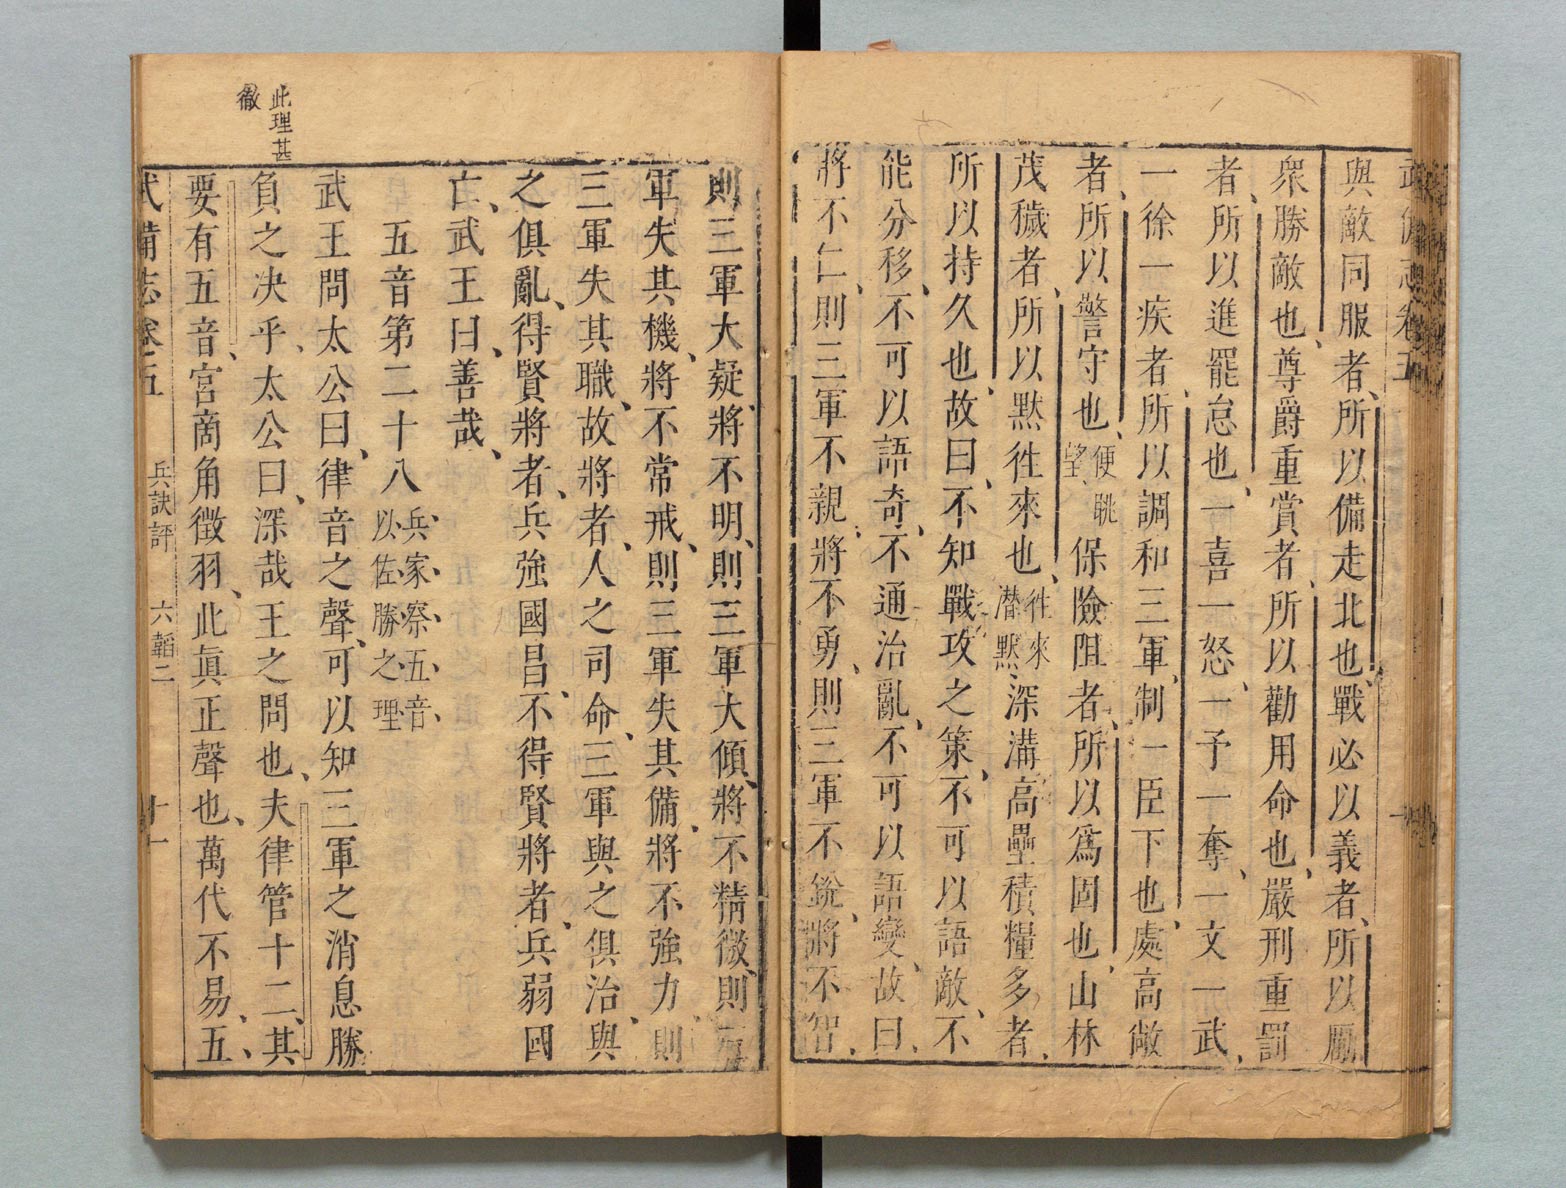 武備志卷五
與敵同服者所以備走北也戰必以義者所以勵
衆勝敵也尊爵重賞者所以勸用命也嚴刑重罰
者所以進罷怠也一喜一怒一予一奪一文一武
一徐一疾者所以調和三軍制一臣下也處高敞
者所以警守也便眺望保險阻者所以爲固也山林
茂穢者所以默徃來也徃來潛默深溝高壘積糧多者
所以持久也故曰不知戰攻之策不可以語敵不
能分移不可以語奇不通治亂不可以語變故曰
將不仁則三軍不親將不勇則三軍不銳將不智
則三軍大疑將不明則三軍大傾將不精微則三
軍失其機將不常戒則三軍失其備將不強力則
三軍失其職故將者人之司命三軍與之俱治與
之俱亂得賢將者兵強國昌不得賢將者兵弱國
亡武王曰善哉
五音第二十八兵家察五音以佐勝之理
武王問太公曰律音之聲可以知三軍之消息勝
負之决乎太公曰深哉王之問也夫律管十二其
要有五音宮商角徵羽此眞正聲也萬代不易五
此理甚
徹
武備志卷五 兵訣評 六韜二 十一